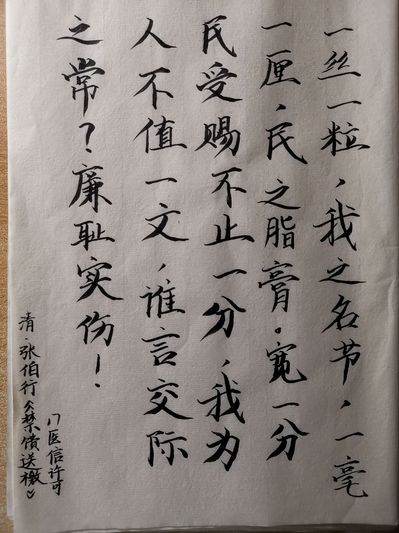 一丝一粒，我之名节，一毫
一厘，民之脂膏。宽一分
民受赐不止一分，我为
人不值一文，谁言交际
之常？廉耻实伤！
清·张伯行《禁馈送檄》